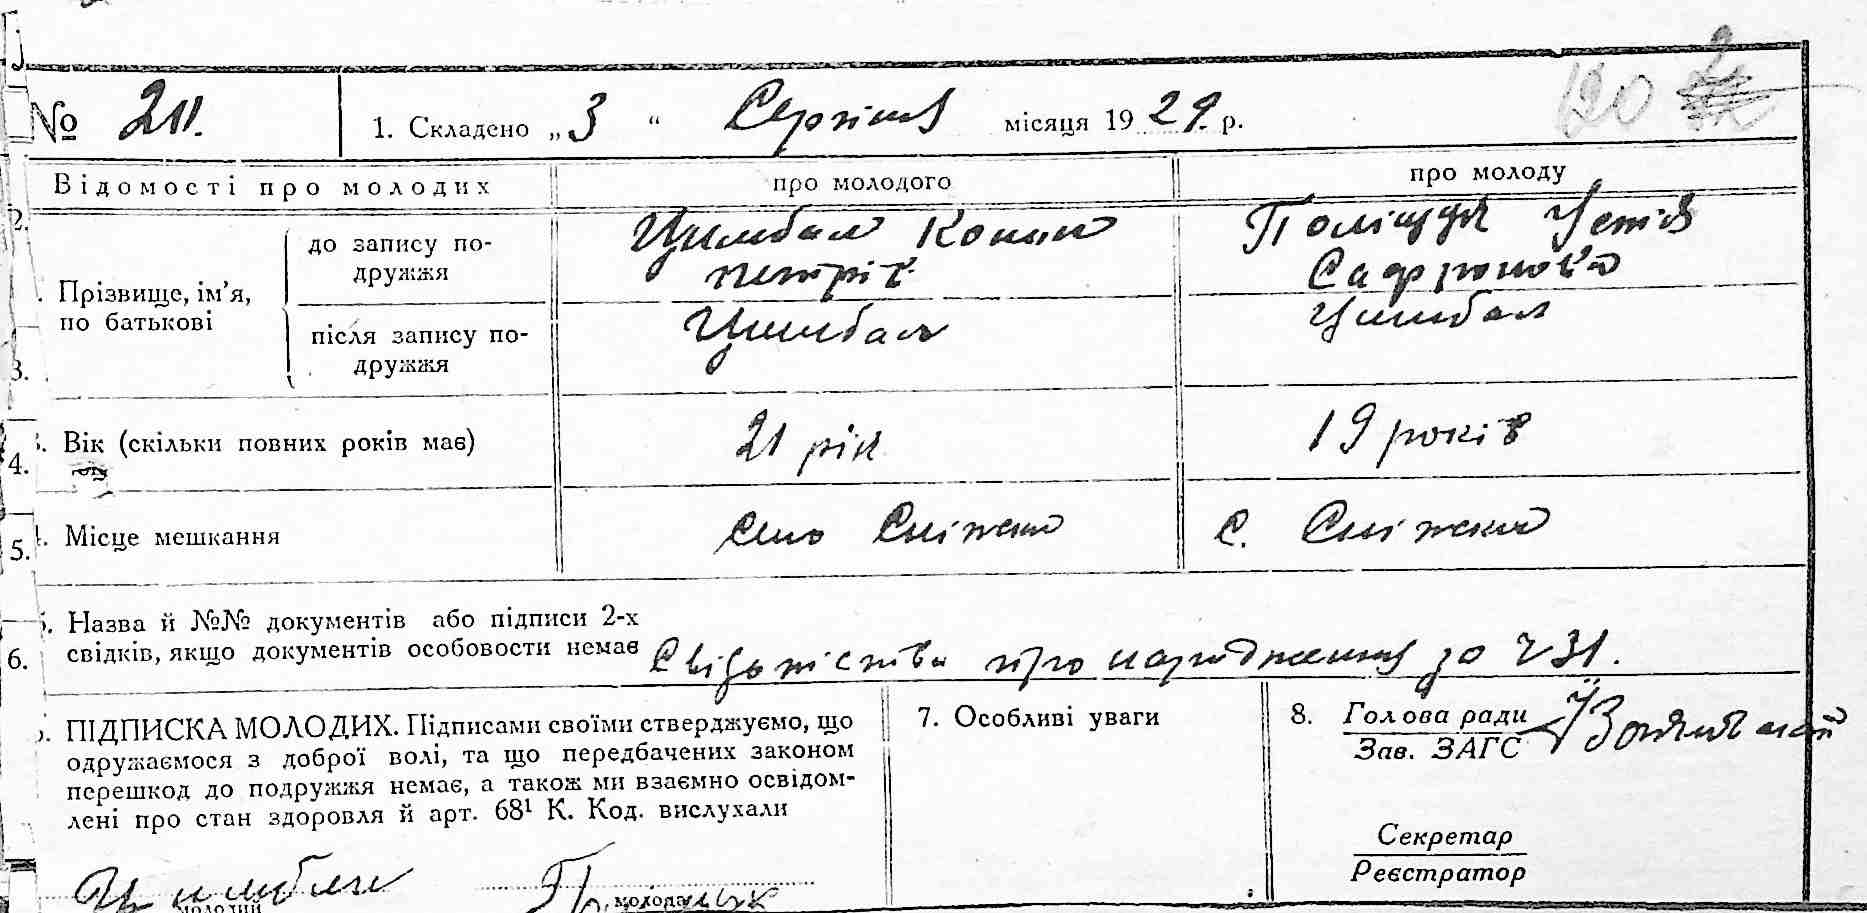 № 211. 1. Складено „3“ Серпня місяця 1929. р. 120
Відомості про молодих про молодого про молоду
2. Прізвище, ім’я, по батькові
до запису по-
дружжя
Цимбал Конон
петріч
Поліщук Устія
Сафронов'а
після запису по-
дружжя
Цимбал
Цимбал
3. Вік (скільки повних років має) 21 рік 19 років
4. Місце мешкання село Сніжки с. Сніжки
5. Назва й №№ документів або підписи 2-х
свідків, якщо документів особовости немає Свідоцтва про народження за ч 31.
6. ПІДПИСКА МОЛОДИХ. Підписами своїми стверджуємо, що
одружаємося з доброї волі, та що передбачених законом
перешкод до подружжя немає, а також ми взаємно освідом-
лені про стан здоровля й арт. 68¹ К. Код. вислухали
Цимбал Поліщук
молодий молода
7. Особливі уваги
8. Голова ради
Зав. ЗАГС
Секретар
Реєстратор